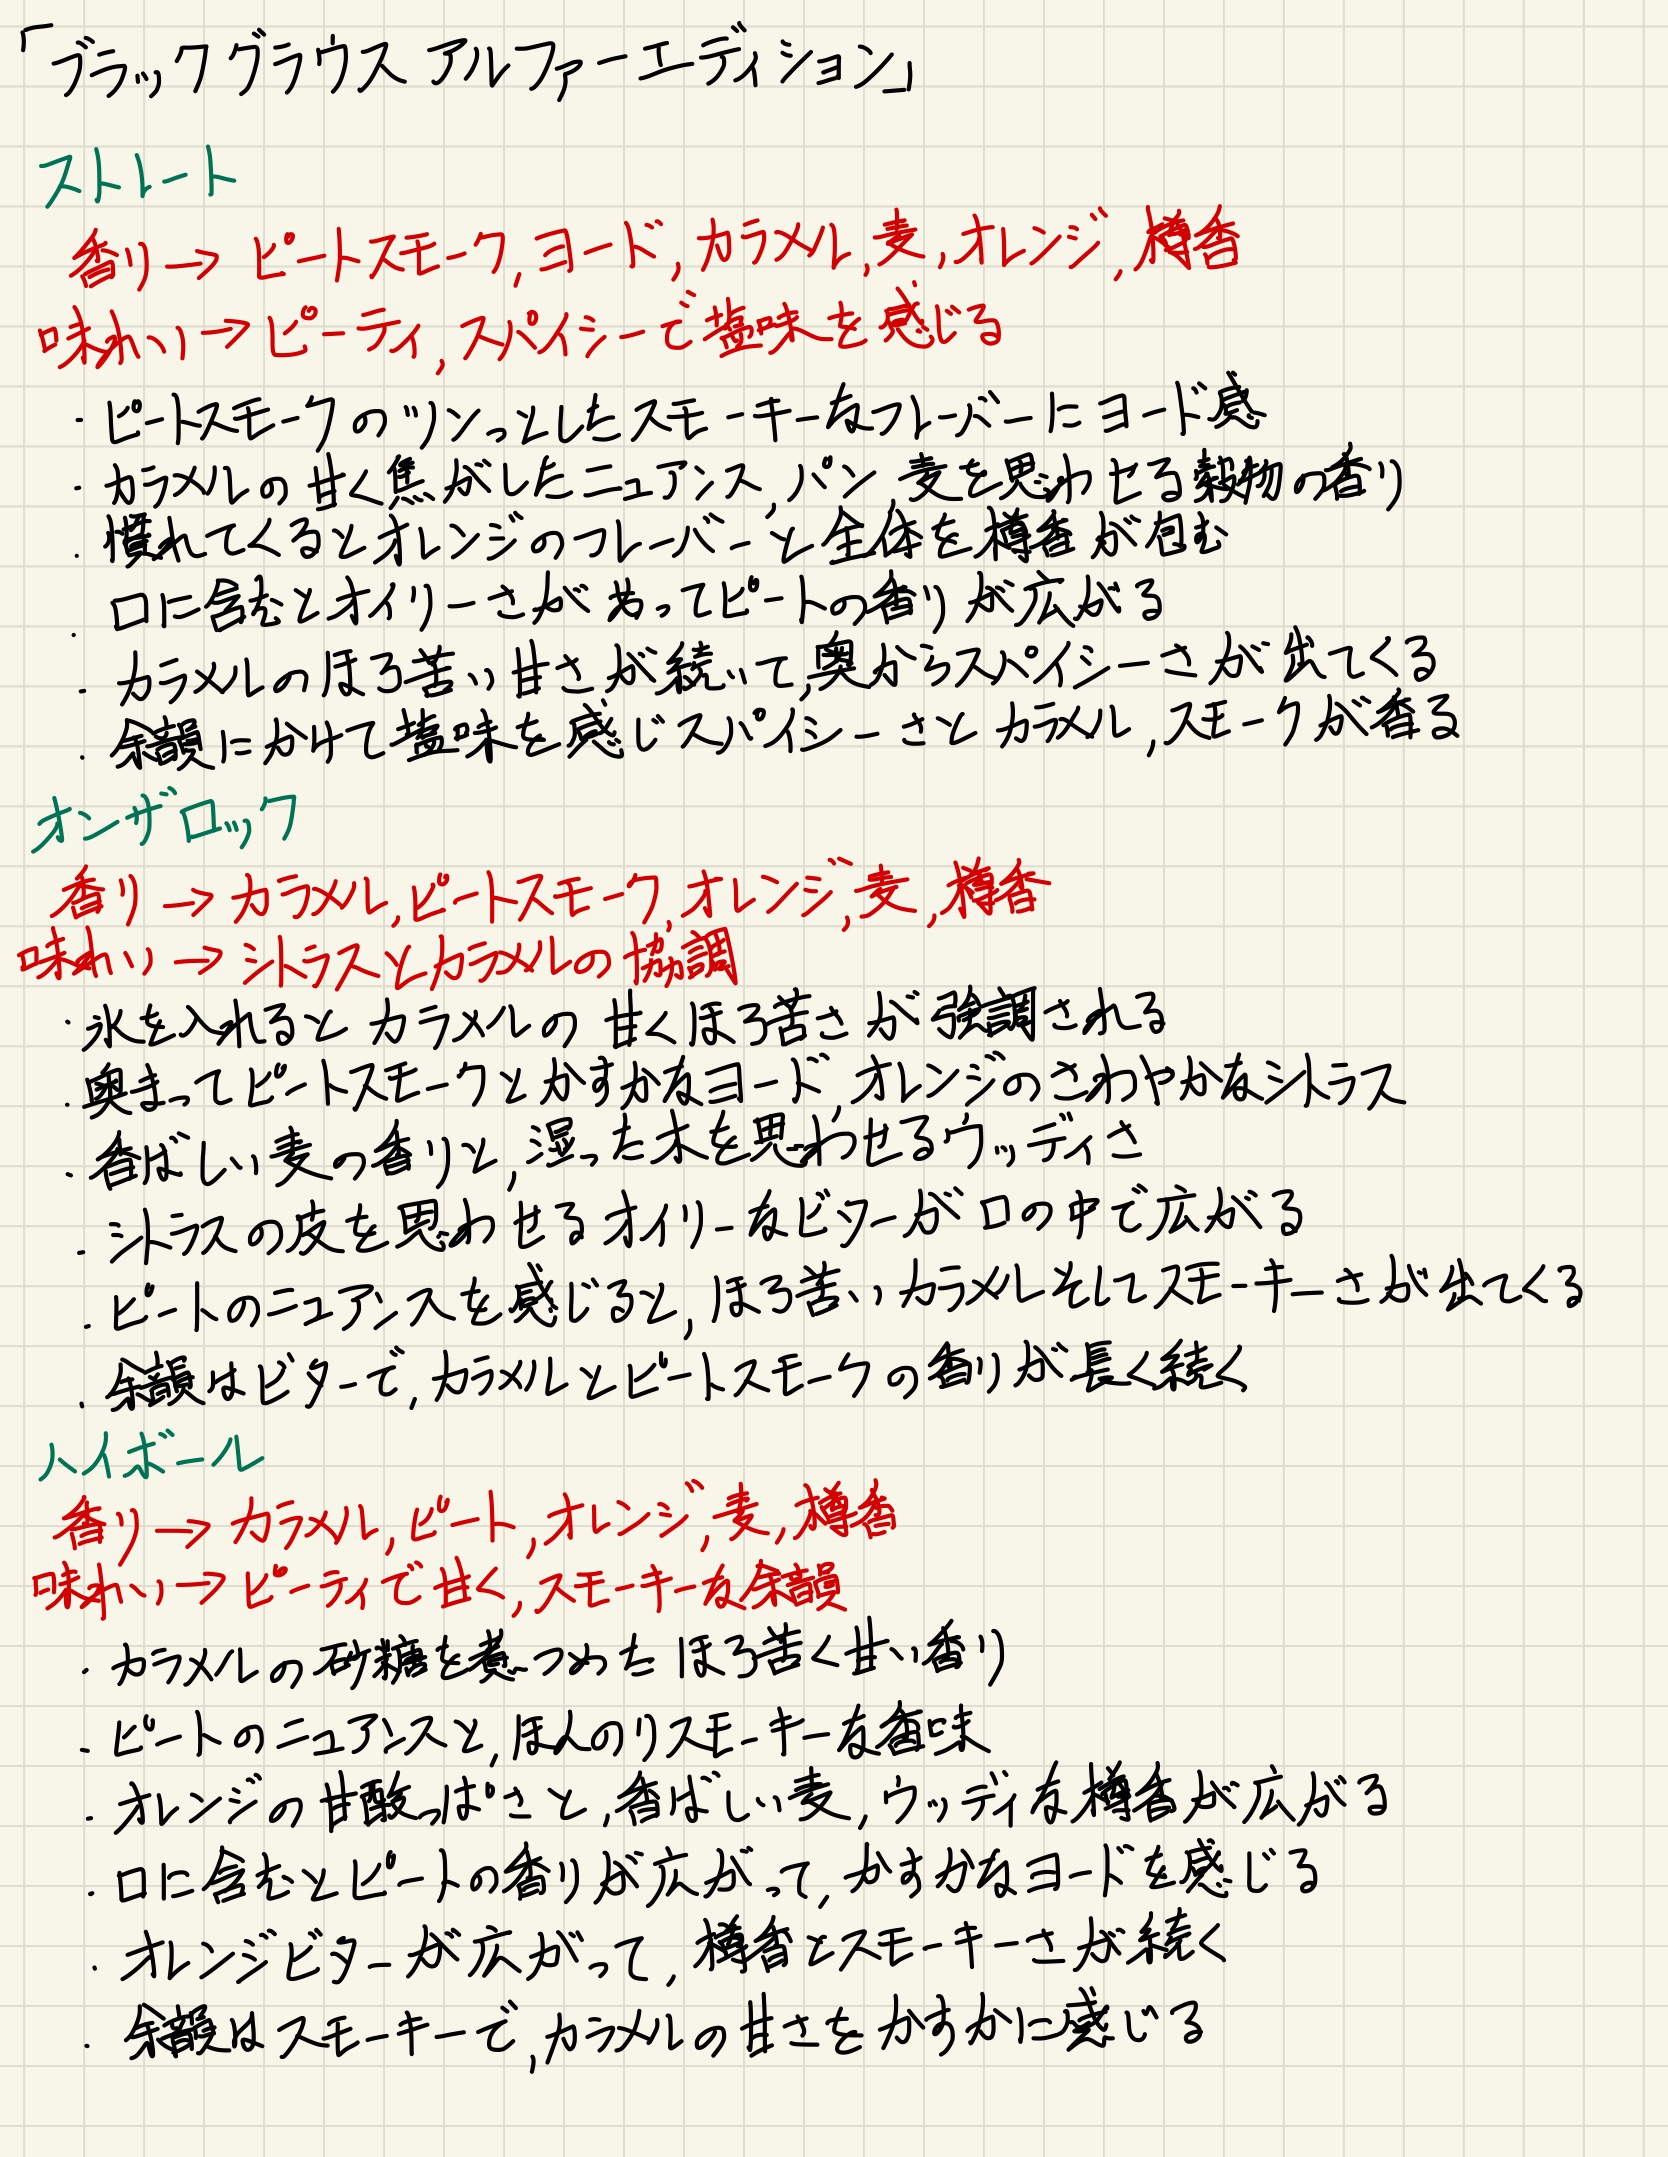 「ブラックグラウス アルファーエディション」
ストレート
香り→ピートスモーク,ヨード,カラメル,麦,オレンジ,樽香
味わい→ピーティ,スパイシーで塩味を感じる
・ピートスモークのツンっとしたスモーキーなフレーバーにヨード感
・カラメルの甘く焦がしたニュアンス,パン,麦を思わせる穀物の香り
・慣れてくるとオレンジのフレーバーと全体を樽香が包む
・口に含むとオイリーさがあってピートの香りが広がる
・カラメルのほろ苦い甘さが続いて,奥からスパイシーさが出てくる
・余韻にかけて塩味を感じスパイシーさとカラメル,スモークが香る
オンザロック
香り→カラメル,ピートスモーク,オレンジ,麦,樽香
味わい→シトラスとカラメルの協調
・氷を入れるとカラメルの甘くほろ苦さが強調される
・奥まってピートスモークとかすかなヨード,オレンジのさわやかなシトラス
・香ばしい麦の香りと,湿った木を思わせるウッディさ
・シトラスの皮を思わせるオイリーなビターが口の中で広がる
・ピートのニュアンスを感じると,ほろ苦いカラメルそしてスモーキーさが出てくる
・余韻はビターで,カラメルとピートスモークの香りが長く続く
ハイボール
香り→カラメル,ピート,オレンジ,麦,樽香
味わい→ピーティで甘く,スモーキーな余韻
・カラメルの砂糖を煮つめたほろ苦く甘い香り
・ピートのニュアンスと,ほんのりスモーキーな香味
・オレンジの甘酸っぱさと,香ばしい麦,ウッディな樽香が広がる
・口に含むとピートの香りが広がって,かすかなヨードを感じる
・オレンジビターが広がって,樽香とスモーキーさが続く
・余韻はスモーキーで,カラメルの甘さをかすかに感じる